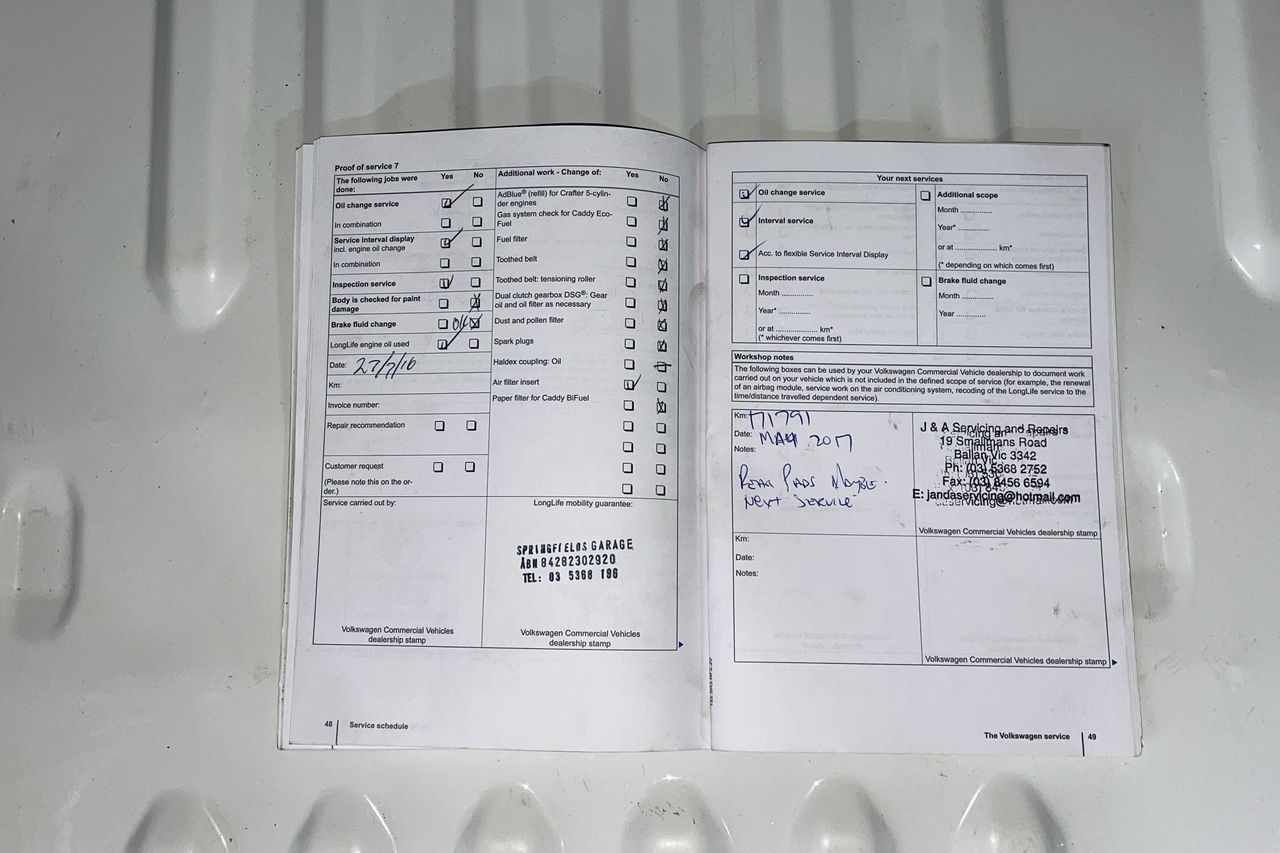 Proof of service 7
The following jobs were done:
Yes
No
Oil change service
In combination
Service interval display
incl. engine oil change
In combination
Inspection service
Body is checked for paint
damage
Brake fluid change
LongLife engine oil used
Date: 27/7/16
Km:
Invoice number:
Repair recommendation
Customer request
(Please note this on the or-
der.)
Service carried out by:
Volkswagen Commercial Vehicles
dealership stamp
Additional work - Change of:
Yes
No
AdBlue® (refill) for Crafter 5-cylin-
der engines
Gas system check for Caddy Eco-
Fuel
Fuel filter
Toothed belt
Toothed belt: tensioning roller
Dual clutch gearbox DSG®: Gear
oil and oil filter as necessary
Dust and pollen filter
Spark plugs
Haldex coupling: Oil
Air filter insert
Paper filter for Caddy BiFuel
LongLife mobility guarantee:
SPRINGFIELDS GARAGE
ABN 84282302920
TEL: 03 5368 196
Volkswagen Commercial Vehicles
dealership stamp
48
Service schedule
Your next services
Oil change service
Interval service
Acc. to flexible Service Interval Display
Inspection service
Month .............
Year* .............
or at ................. km*
(* whichever comes first)
Additional scope
Month .............
Year* .............
or at ................. km*
(* depending on which comes first)
Brake fluid change
Month .............
Year .............
Workshop notes
The following boxes can be used by your Volkswagen Commercial Vehicle dealership to document work
carried out on your vehicle which is not included in the defined scope of service (for example, the renewal
of an airbag module, service work on the air conditioning system, recoding of the LongLife service to the
time/distance travelled dependent service).
Km: 171791
Date: MAY 2017
Notes:
REAR PADS MAYBE
NEXT SERVICE
J & A Servicing and Repairs
19 Smallmans Road
Ballan Vic 3342
Ph: (03) 5368 2752
Fax: (03) 8456 6594
E: jandaservicing@hotmail.com
Volkswagen Commercial Vehicles dealership stamp
Km:
Date:
Notes:
Volkswagen Commercial Vehicles dealership stamp
The Volkswagen service
49